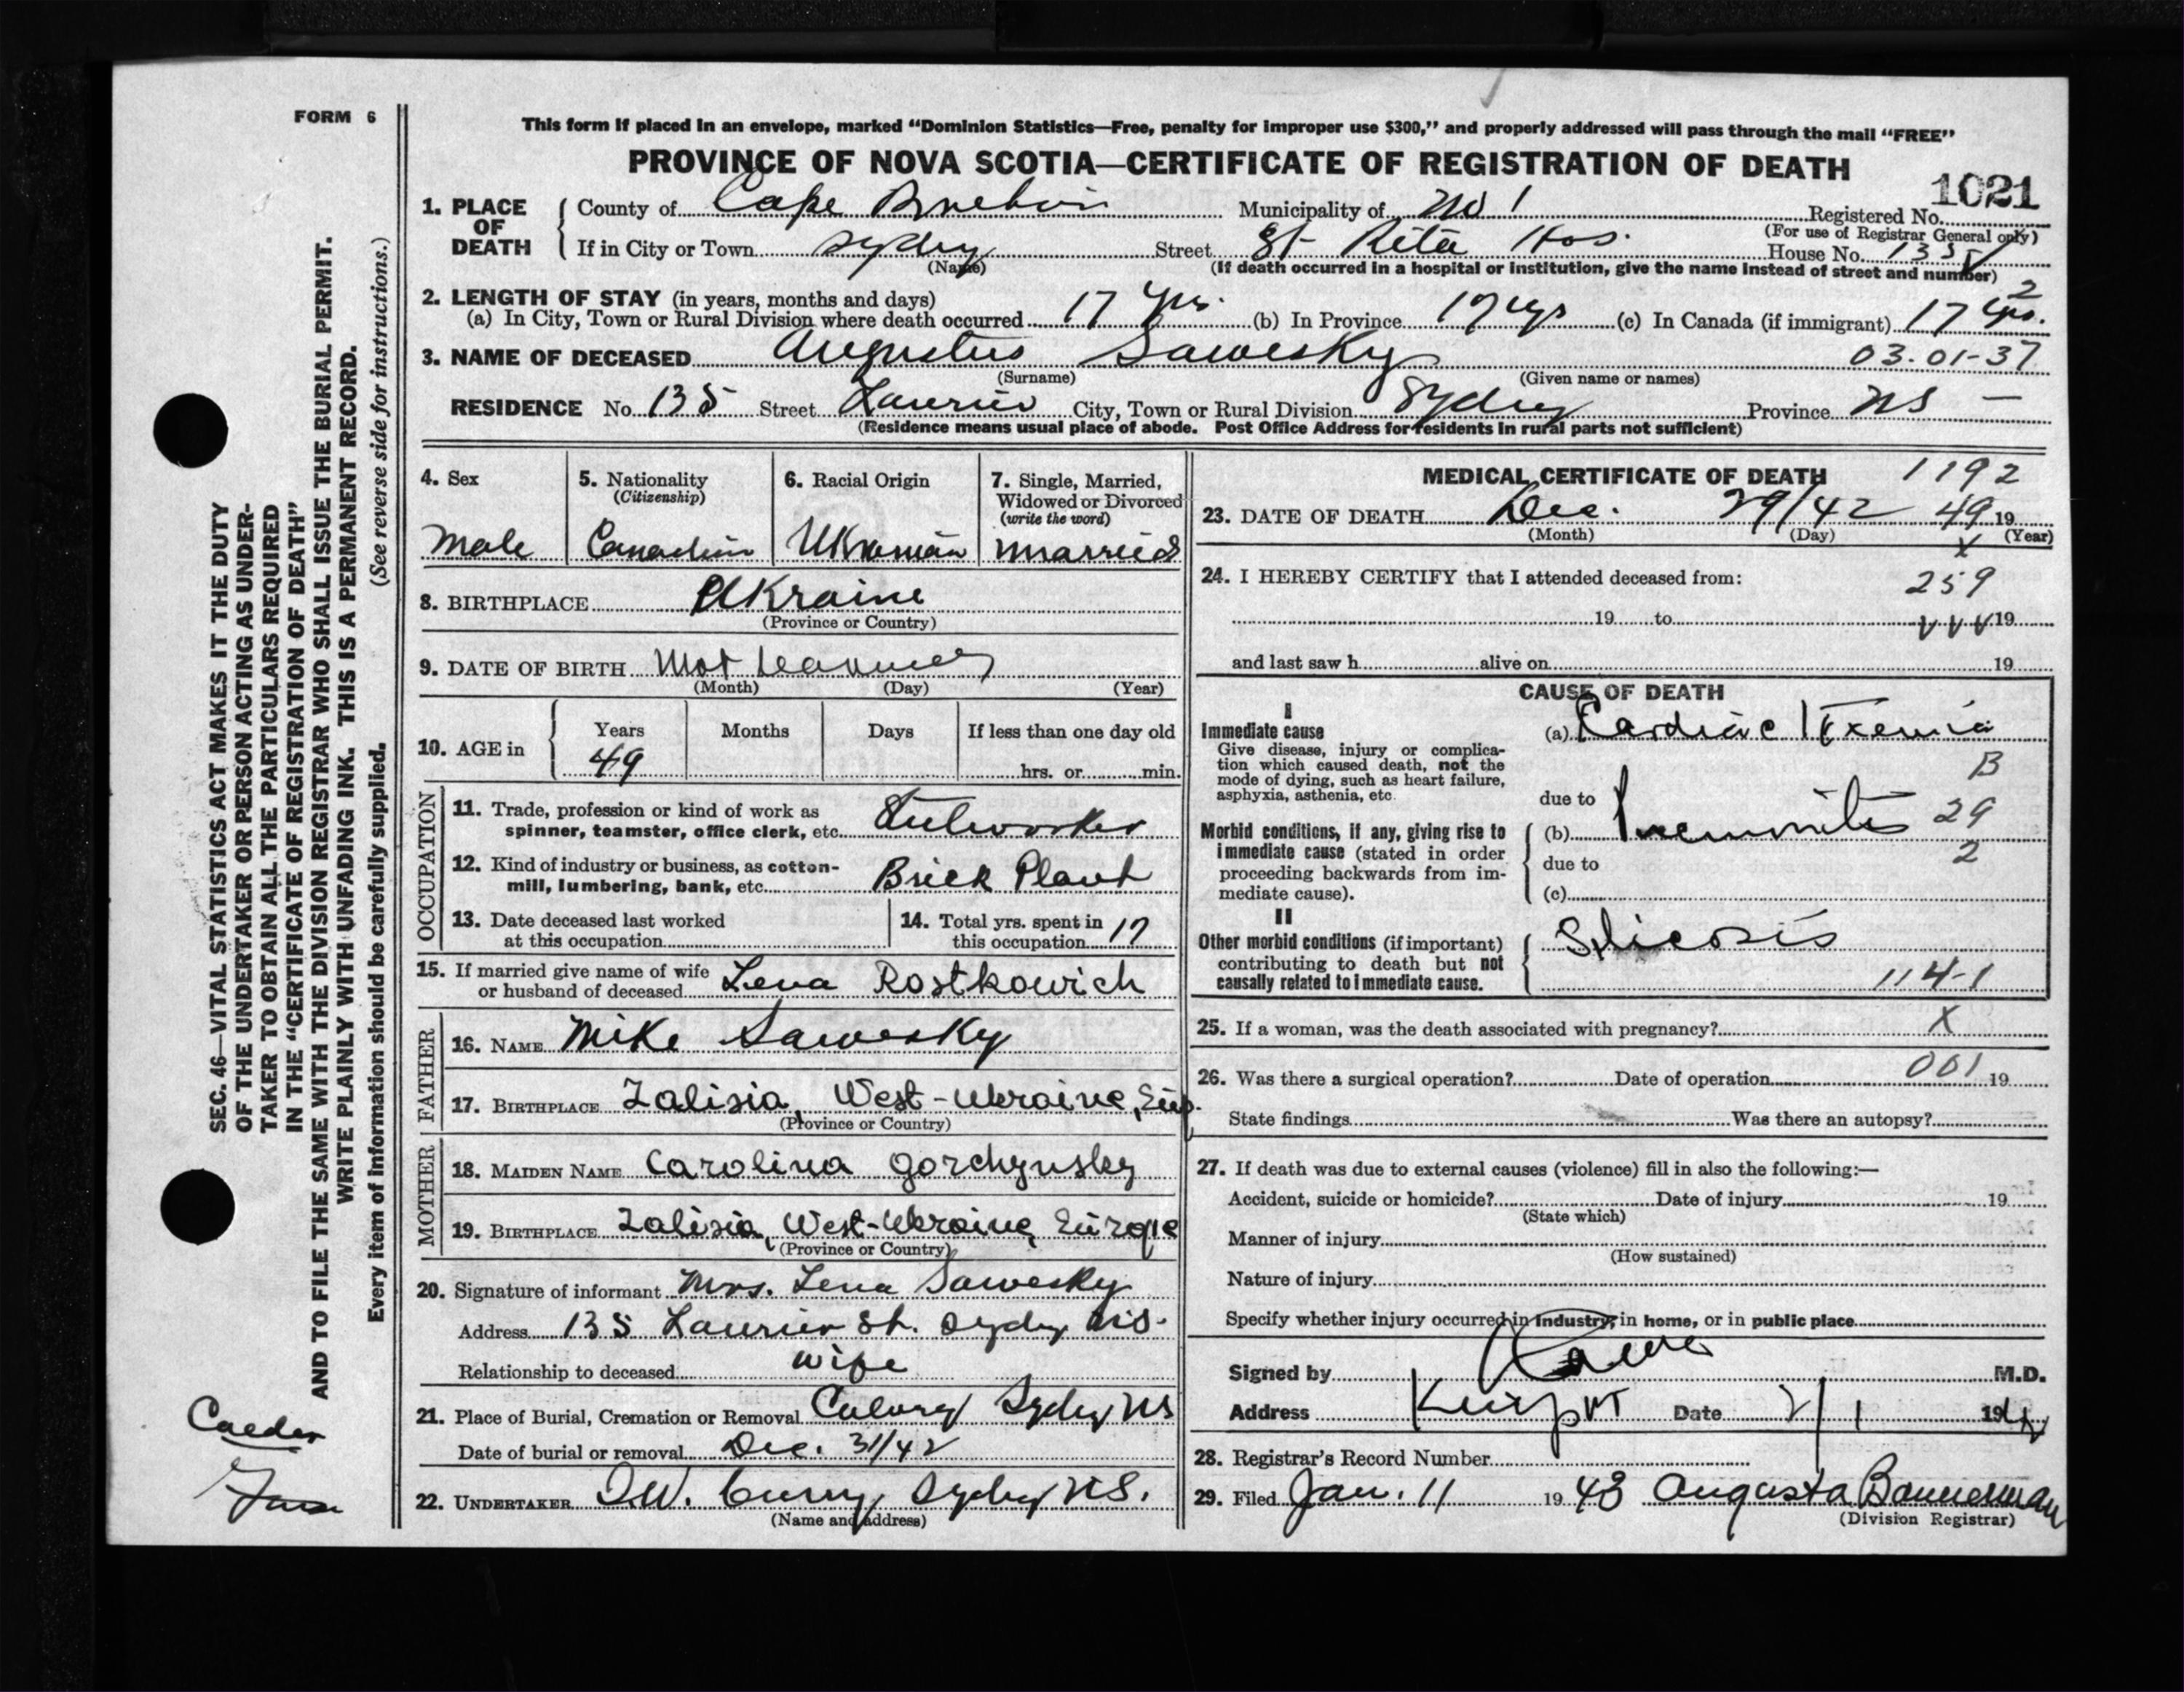 FORM 6
This form if placed in an envelope, marked "Dominion Statistics—Free, penalty for improper use $300," and properly addressed will pass through the mail "FREE"
PROVINCE OF NOVA SCOTIA—CERTIFICATE OF REGISTRATION OF DEATH
1021
1. PLACE OF DEATH County of Cape Breton Municipality of No 1 Registered No.
(For use of Registrar General only)
If in City or Town Sydney Street St Rita Hos. House No. 135
(Name) (If death occurred in a hospital or institution, give the name instead of street and number)
2. LENGTH OF STAY (in years, months and days) 2
(a) In City, Town or Rural Division where death occurred 17 yrs. (b) In Province 17 yrs (c) In Canada (if immigrant) 17 yrs.
3. NAME OF DECEASED Augustus Sawesky 03-01-37
(Surname) (Given name or names)
RESIDENCE No. 135 Street Laurier City, Town or Rural Division Sydney Province NS —
(Residence means usual place of abode. Post Office Address for residents in rural parts not sufficient)
4. Sex
Male
5. Nationality
(Citizenship)
Canadian
6. Racial Origin
Ukranian
7. Single, Married, Widowed or Divorced
(write the word)
Married
8. BIRTHPLACE Ukraine
(Province or Country)
9. DATE OF BIRTH Not
(Month) (Day) (Year)
10. AGE in Years Months Days If less than one day old
49 hrs. or min.
OCCUPATION
11. Trade, profession or kind of work as
spinner, teamster, office clerk, etc. Steelworker
12. Kind of industry or business, as cotton-
mill, lumbering, bank, etc. Brick Plant
13. Date deceased last worked
at this occupation
14. Total yrs. spent in
this occupation 17
15. If married give name of wife
or husband of deceased Lena Rostkowich
FATHER
16. NAME Mike Sawesky
17. BIRTHPLACE Zalisia, West-Ukraine, Eup.
(Province or Country)
MOTHER
18. MAIDEN NAME Carolina Gorchynsky
19. BIRTHPLACE Zalisia, West-Ukraine, Europe
(Province or Country)
20. Signature of informant Mrs. Lena Sawesky
Address 135 Laurier St. Sydney N.S.
Relationship to deceased wife
21. Place of Burial, Cremation or Removal Calvary Sydney NS
Date of burial or removal Dec. 31/42
22. UNDERTAKER Curry, Sydney NS.
(Name and address)
MEDICAL CERTIFICATE OF DEATH 1192
23. DATE OF DEATH Dec. 29/42 49 19
(Month) (Day) (Year)
X
24. I HEREBY CERTIFY that I attended deceased from: 259
19 to 19
and last saw h alive on 19
CAUSE OF DEATH
I
Immediate cause
Give disease, injury or complica-
tion which caused death, not the
mode of dying, such as heart failure,
asphyxia, asthenia, etc.
(a) Cardiac
B
due to
29
(b)
2
due to
(c)
Morbid conditions, if any, giving rise to
immediate cause (stated in order
proceeding backwards from im-
mediate cause).
II
Other morbid conditions (if important)
contributing to death but not
causally related to immediate cause.
Silicosis
114-1
25. If a woman, was the death associated with pregnancy? X
26. Was there a surgical operation? Date of operation 001 19
State findings Was there an autopsy?
27. If death was due to external causes (violence) fill in also the following:—
Accident, suicide or homicide? Date of injury 19
(State which)
Manner of injury
(How sustained)
Nature of injury
Specify whether injury occurred in industry, in home, or in public place
Signed by M.D.
Address Date 2/1 194
28. Registrar's Record Number
29. Filed Jan. 11 1943 Augusta Bannerman
(Division Registrar)
SEC. 46—VITAL STATISTICS ACT MAKES IT THE DUTY
OF THE UNDERTAKER OR PERSON ACTING AS UNDER-
TAKER TO OBTAIN ALL THE PARTICULARS REQUIRED
IN THE "CERTIFICATE OF REGISTRATION OF DEATH"
AND TO FILE THE SAME WITH THE DIVISION REGISTRAR WHO SHALL ISSUE THE BURIAL PERMIT.
WRITE PLAINLY WITH UNFADING INK. THIS IS A PERMANENT RECORD.
Every item of information should be carefully supplied. (See reverse side for instructions.)